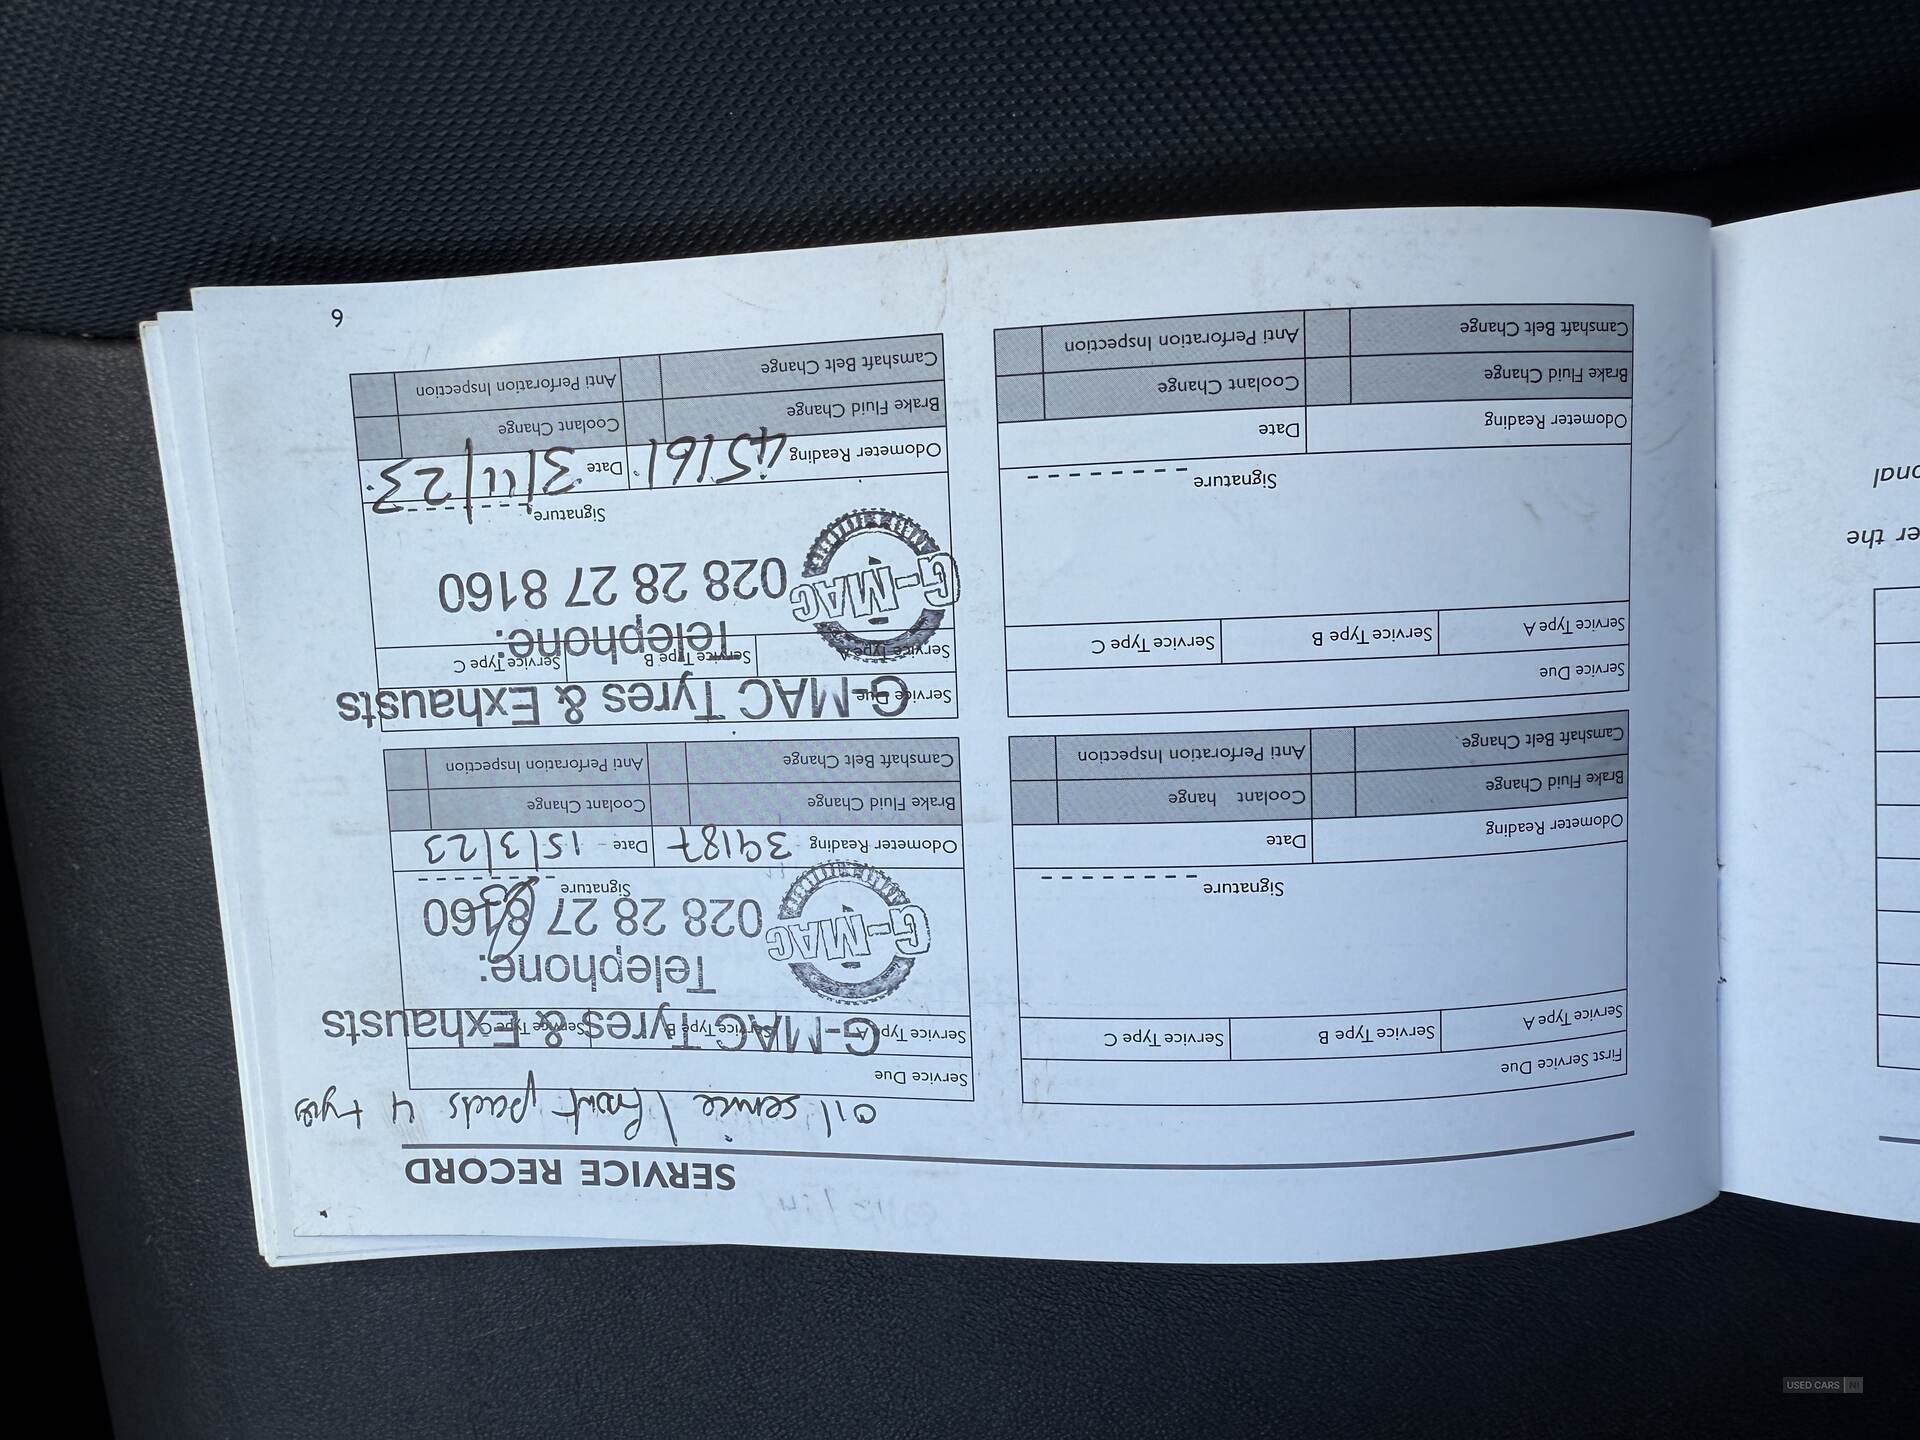 SERVICE RECORD
oil service / front pads 4 tyres
First Service Due
Service Type A
Service Type B
Service Type C
Signature
Odometer Reading
Date
Brake Fluid Change
Coolant hange
Camshaft Belt Change
Anti Perforation Inspection
Service Due
Service Type A
Service Type B
Service Type C
Signature
Odometer Reading
Date
Brake Fluid Change
Coolant Change
Camshaft Belt Change
Anti Perforation Inspection
Service Due
Service Type A
Service Type B
Service Type C
G-MAC Tyres & Exhausts
Telephone:
028 28 27 8160
G-MAC
Signature
Odometer Reading 39187
Date 15/3/23
Brake Fluid Change
Coolant Change
Camshaft Belt Change
Anti Perforation Inspection
Service Due
G-MAC Tyres & Exhausts
Service Type A
Service Type B
Service Type C
Telephone:
028 28 27 8160
G-MAC
Signature
Odometer Reading 45161
Date 3/11/23
Brake Fluid Change
Coolant Change
Camshaft Belt Change
Anti Perforation Inspection
6
er the
onal
USED CARS NI